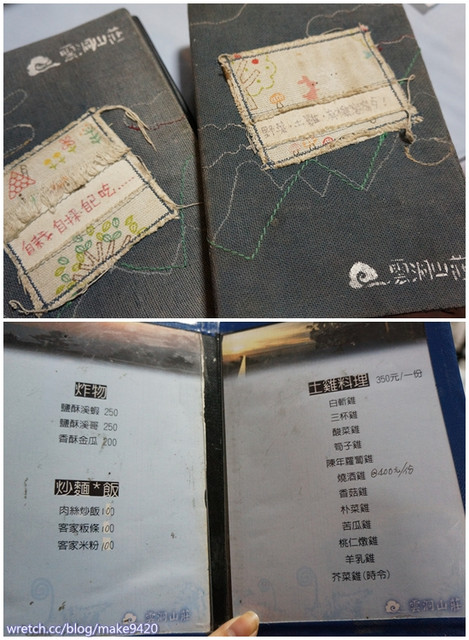 自栽自採自配吃......
炸物
鹽酥溪蝦 250
鹽酥溪哥 250
香酥金瓜 200
炒麵*飯
肉絲炒飯 100
客家粄條 100
客家米粉 100
土雞料理 350元/一份
白斬雞
三杯雞
酸菜雞
筍子雞
陳年蘿蔔雞
燒酒雞 400元/份
香菇雞
朴菜雞
苦瓜雞
桃仁燉雞
羊乳雞
芥菜雞(時令)
山莊
wretch.cc/blog/make9420